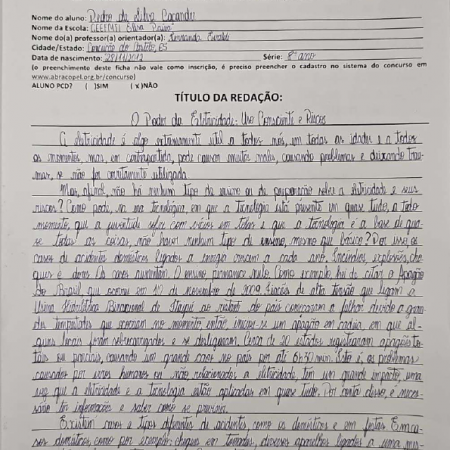 Nome do aluno: Pedro da Silva
Nome da Escola: CEEFMTI
Nome do(a) professor(a) orientador(a): Fernanda
Cidade/Estado: Conceição do Castelo, ES
Data de nascimento: 29/11/2012 Série: 8º ano
(o preenchimento deste ficha não vale como inscrição, é preciso preencher o cadastro no sistema do concurso em
www.abracopel.org.br/concurso)
ALUNO PCD? ( )SIM (x)NÃO
TÍTULO DA REDAÇÃO:
O Poder da Eletricidade: Uso Consciente e Riscos
A eletricidade é algo extremamente útil a todos nós, em todas as idades e a todos
os momentos, mas, em contrapartida, pode causar muitos males, causando problemas e deixando trau-
mas, se não for corretamente utilizada.
Mas, afinal, não há nenhum tipo de ensino ou de preparação sobre a eletricidade e seus
riscos? Como pode, na era tecnológica, em que a tecnologia está presente em quase tudo, a todo
momento, que a juventude sofre com vícios em telas e que a tecnologia é a base de qua-
se todas as coisas, não haver nenhum tipo de ensino, mesmo que básico? Por isso, os
casos de acidentes domésticos ligados a energia crescem a cada ano. Incêndios, explosões, cho-
ques e danos. Os casos aumentam. O ensino permanece nulo. Como exemplo, hei de citar o Apagão
do Brasil, que ocorreu em 10 de novembro de 2009. de alta tensão que ligam a
Usina Hidrelétrica Binacional de Itaipu ao sudeste do país começaram a falhar, devido a gran-
des tempestades que ocorriam no momento, então iniciou-se um apagão em cadeia, em que al-
guns locais foram sobrecarregados e se desligaram. Cerca de 20 estados registraram apagões to-
tais ou parciais, causando um grande caos no país por até 6h30min. Isto é, os problemas
causados por seres humanos ou não, relacionados a eletricidade, têm um grande impacto, uma
vez que a eletricidade e a tecnologia estão aplicadas em quase tudo. Por conta disso, é neces-
sário ter informações e saber como se prevenir.
Existem casos e tipos diferentes de acidentes, como os domésticos e em festas. Em ca-
sos domésticos, como por exemplo: choques em tomadas, diversos aparelhos ligados a uma mes-